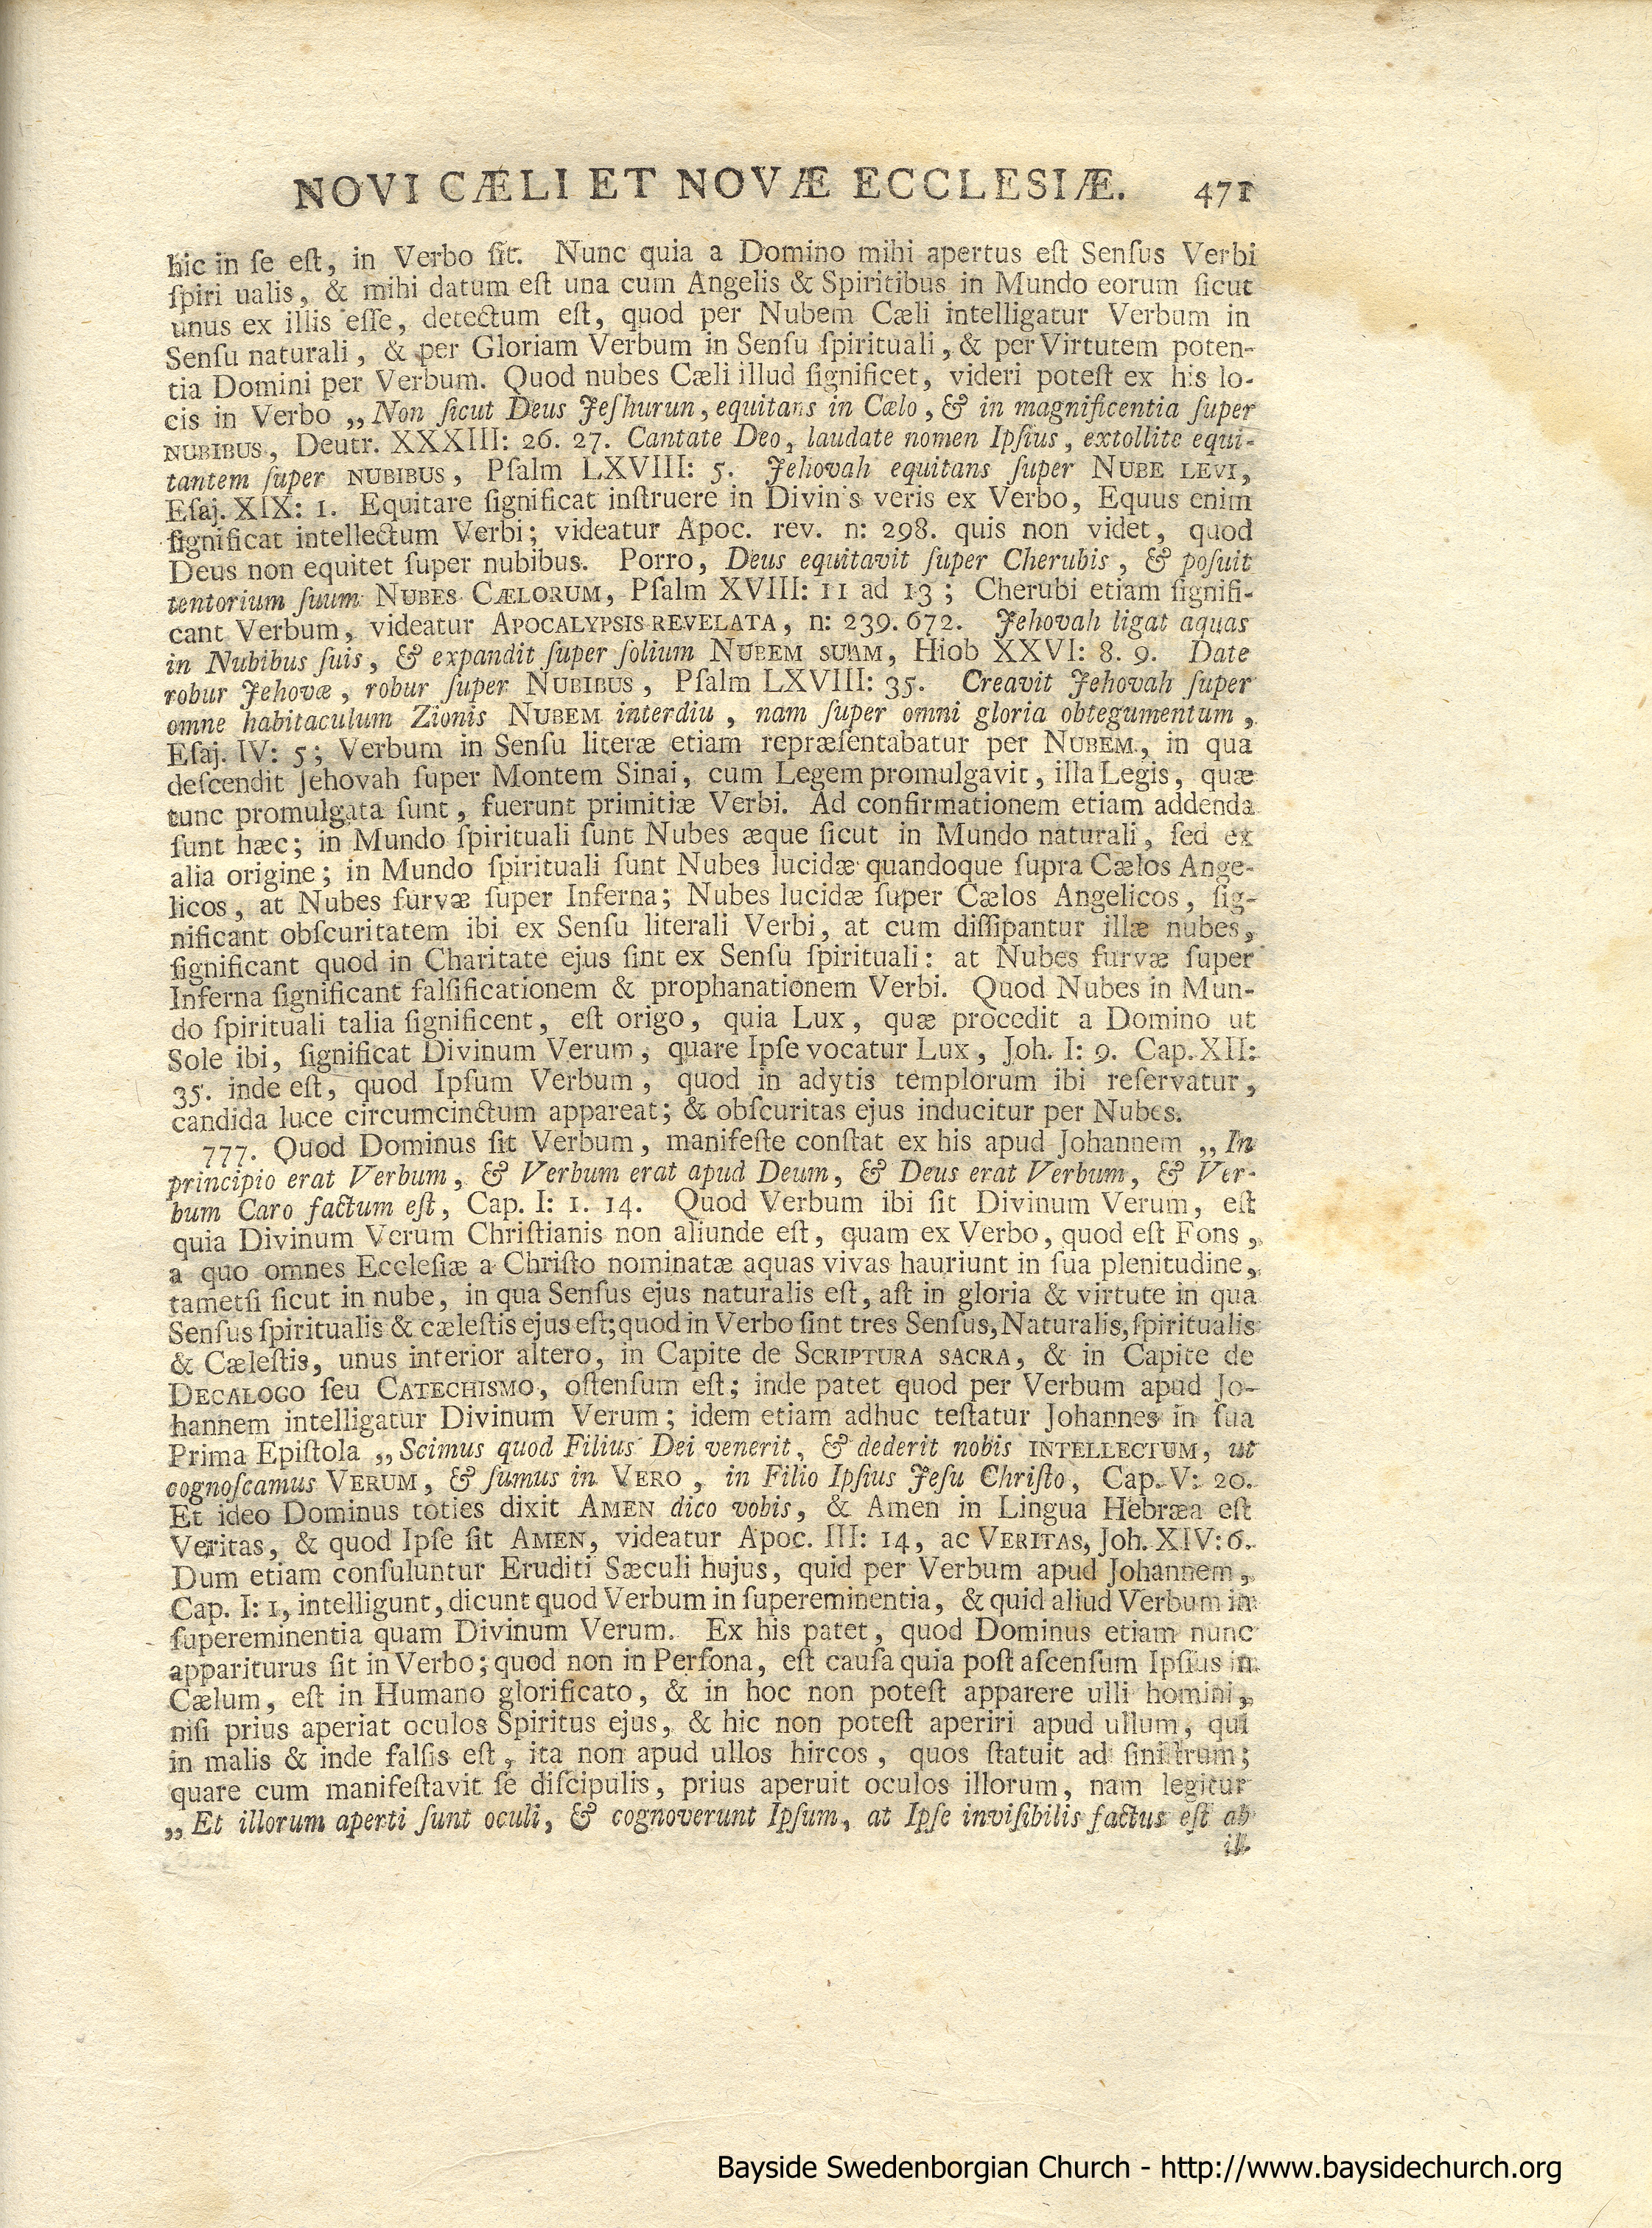 NOVI CÆLI ET NOVÆ ECCLESIÆ. 471
hic in ſe eſt, in Verbo ſit. Nunc quia a Domino mihi apertus eſt Senſus Verbi
ſpiri ualis, & mihi datum eſt una cum Angelis & Spiritibus in Mundo eorum ſicut
unus ex illis eſſe, detectum eſt, quod per Nubem Cæli intelligatur Verbum in
Senſu naturali, & per Gloriam Verbum in Senſu ſpirituali, & per Virtutem poten-
tia Domini per Verbum. Quod nubes Cæli illud ſignificet, videri poteſt ex his lo-
cis in Verbo „Non ſicut Deus Jeſhurun, equitans in Cælo, & in magnificentia ſuper
NUBIBUS, Deutr. XXXIII: 26. 27. Cantate Deo, laudate nomen Ipſius, extollite equi-
tantem ſuper NUBIBUS, Pſalm LXVIII: 5. Jehovah equitans ſuper NUBE LEVI,
Eſaj. XIX: 1. Equitare ſignificat inſtruere in Divinis veris ex Verbo, Equus enim
ſignificat intellectum Verbi; videatur Apoc. rev. n: 298. quis non videt, quod
Deus non equitet ſuper nubibus. Porro, Deus equitavit ſuper Cherubis, & poſuit
tentorium ſuum NUBES CÆLORUM, Pſalm XVIII: 11 ad 13; Cherubi etiam ſignifi-
cant Verbum, videatur APOCALYPSIS REVELATA, n: 239. 672. Jehovah ligat aquas
in Nubibus ſuis, & expandit ſuper ſolium NUBEM SUAM, Hiob XXVI: 8. 9. Date
robur Jehovæ, robur ſuper NUBIBUS, Pſalm LXVIII: 35. Creavit Jehovah ſuper
omne habitaculum Zionis NUBEM interdiu, nam ſuper omni gloria obtegumentum,
Eſaj. IV: 5; Verbum in Senſu literæ etiam repræſentabatur per NUBEM, in qua
deſcendit Jehovah ſuper Montem Sinai, cum Legem promulgavit, illa Legis, quæ
tunc promulgata ſunt, fuerunt primitiæ Verbi. Ad confirmationem etiam addenda
ſunt hæc; in Mundo ſpirituali ſunt Nubes æque ſicut in Mundo naturali, ſed ex
alia origine; in Mundo ſpirituali ſunt Nubes lucidæ quandoque ſupra Cælos Ange-
licos, at Nubes furvæ ſuper Inferna; Nubes lucidæ ſuper Cælos Angelicos, ſig-
nificant obſcuritatem ibi ex Senſu literali Verbi, at cum diſſipantur illæ nubes,
ſignificant quod in Charitate ejus ſint ex Senſu ſpirituali: at Nubes furvæ ſuper
Inferna ſignificant falſificationem & prophanationem Verbi. Quod Nubes in Mun-
do ſpirituali talia ſignificent, eſt origo, quia Lux, quæ procedit a Domino ut
Sole ibi, ſignificat Divinum Verum, quare Ipſe vocatur Lux, Joh. I: 9. Cap. XII:
35. inde eſt, quod Ipſum Verbum, quod in adytis templorum ibi reſervatur,
candida luce circumcinctum appareat; & obſcuritas ejus inducitur per Nubes.
777. Quod Dominus ſit Verbum, manifeſte conſtat ex his apud Johannem „In
principio erat Verbum, & Verbum erat apud Deum, & Deus erat Verbum, & Ver-
bum Caro factum eſt, Cap. I: 1. 14. Quod Verbum ibi ſit Divinum Verum, eſt
quia Divinum Verum Chriſtianis non aliunde eſt, quam ex Verbo, quod eſt Fons,
a quo omnes Eccleſiæ a Chriſto nominatæ aquas vivas hauriunt in ſua plenitudine,
tametſi ſicut in nube, in qua Senſus ejus naturalis eſt, aſt in gloria & virtute in qua
Senſus ſpiritualis & cæleſtis ejus eſt; quod in Verbo ſint tres Senſus, Naturalis, ſpiritualis
& Cæleſtis, unus interior altero, in Capite de SCRIPTURA SACRA, & in Capite de
DECALOGO ſeu CATECHISMO, oſtenſum eſt; inde patet quod per Verbum apud Jo-
hannem intelligatur Divinum Verum; idem etiam adhuc teſtatur Johannes in ſua
Prima Epiſtola „Scimus quod Filius Dei venerit, & dederit nobis INTELLECTUM, ut
cognoſcamus VERUM, & ſumus in VERO, in Filio Ipſius Jeſu Chriſto, Cap. V: 20.
Et ideo Dominus toties dixit AMEN dico vobis, & Amen in Lingua Hebræa eſt
Veritas, & quod Ipſe ſit AMEN, videatur Apoc. III: 14, ac VERITAS, Joh. XIV: 6.
Dum etiam conſuluntur Eruditi Sæculi hujus, quid per Verbum apud Johannem,
Cap. I: 1, intelligunt, dicunt quod Verbum in ſupereminentia, & quid aliud Verbum in
ſupereminentia quam Divinum Verum. Ex his patet, quod Dominus etiam nunc
appariturus ſit in Verbo; quod non in Perſona, eſt cauſa quia poſt aſcenſum Ipſius in
Cælum, eſt in Humano glorificato, & in hoc non poteſt apparere ulli homini,
niſi prius aperiat oculos Spiritus ejus, & hic non poteſt aperiri apud ullum, qui
in malis & inde falſis eſt, ita non apud ullos hircos, quos ſtatuit ad ſiniſtrum;
quare cum manifeſtavit ſe diſcipulis, prius aperuit oculos illorum, nam legitur
„Et illorum aperti ſunt oculi, & cognoverunt Ipſum, at Ipſe inviſibilis factus eſt ab
il-
Bayside Swedenborgian Church - http://www.baysidechurch.org